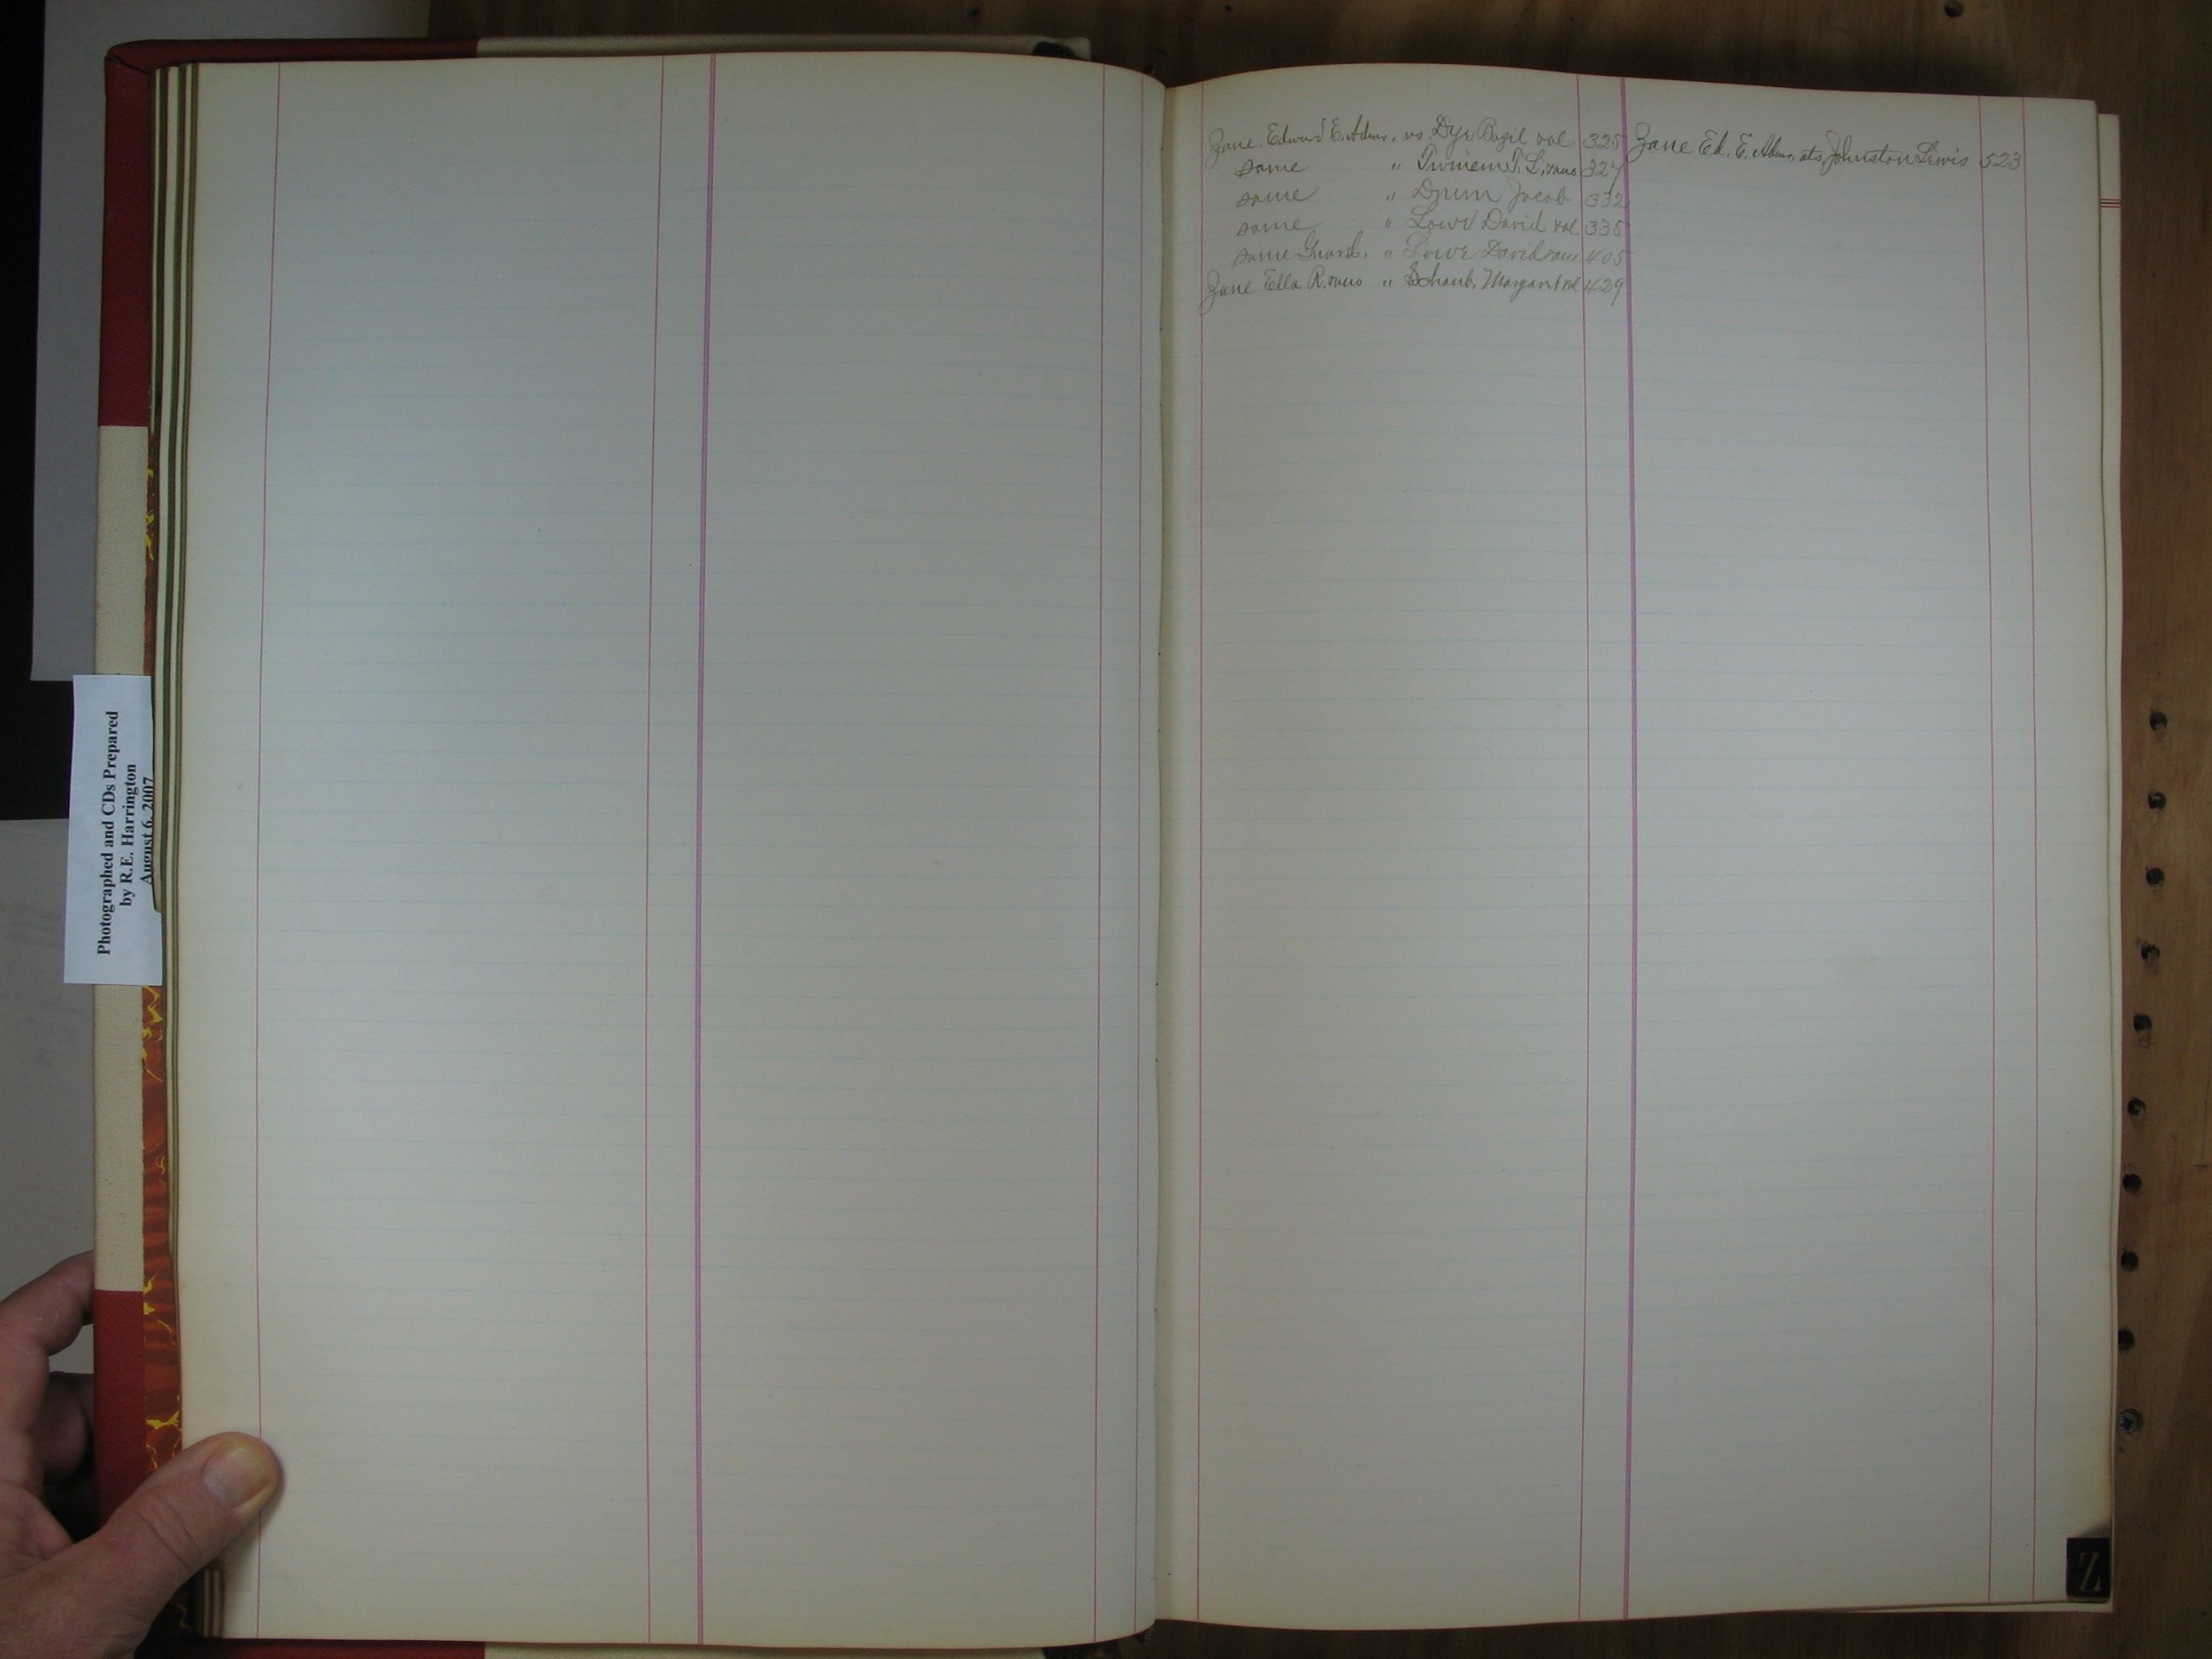 Photographed and CDs Prepared
by R.E. Harrington
August 6, 2007
Zane Edward E. Admr. vs. Dye Bazil et al 325
same " Twinem T. L. 327
same " Drum Jacob 332
same " Lowe David et al 335
same Guard. " Lowe David 405
Zane Ella R. " Schaub, Margaret et al 429
Zane Ed. E. Admr. ats Johnston Lewis 523
Z